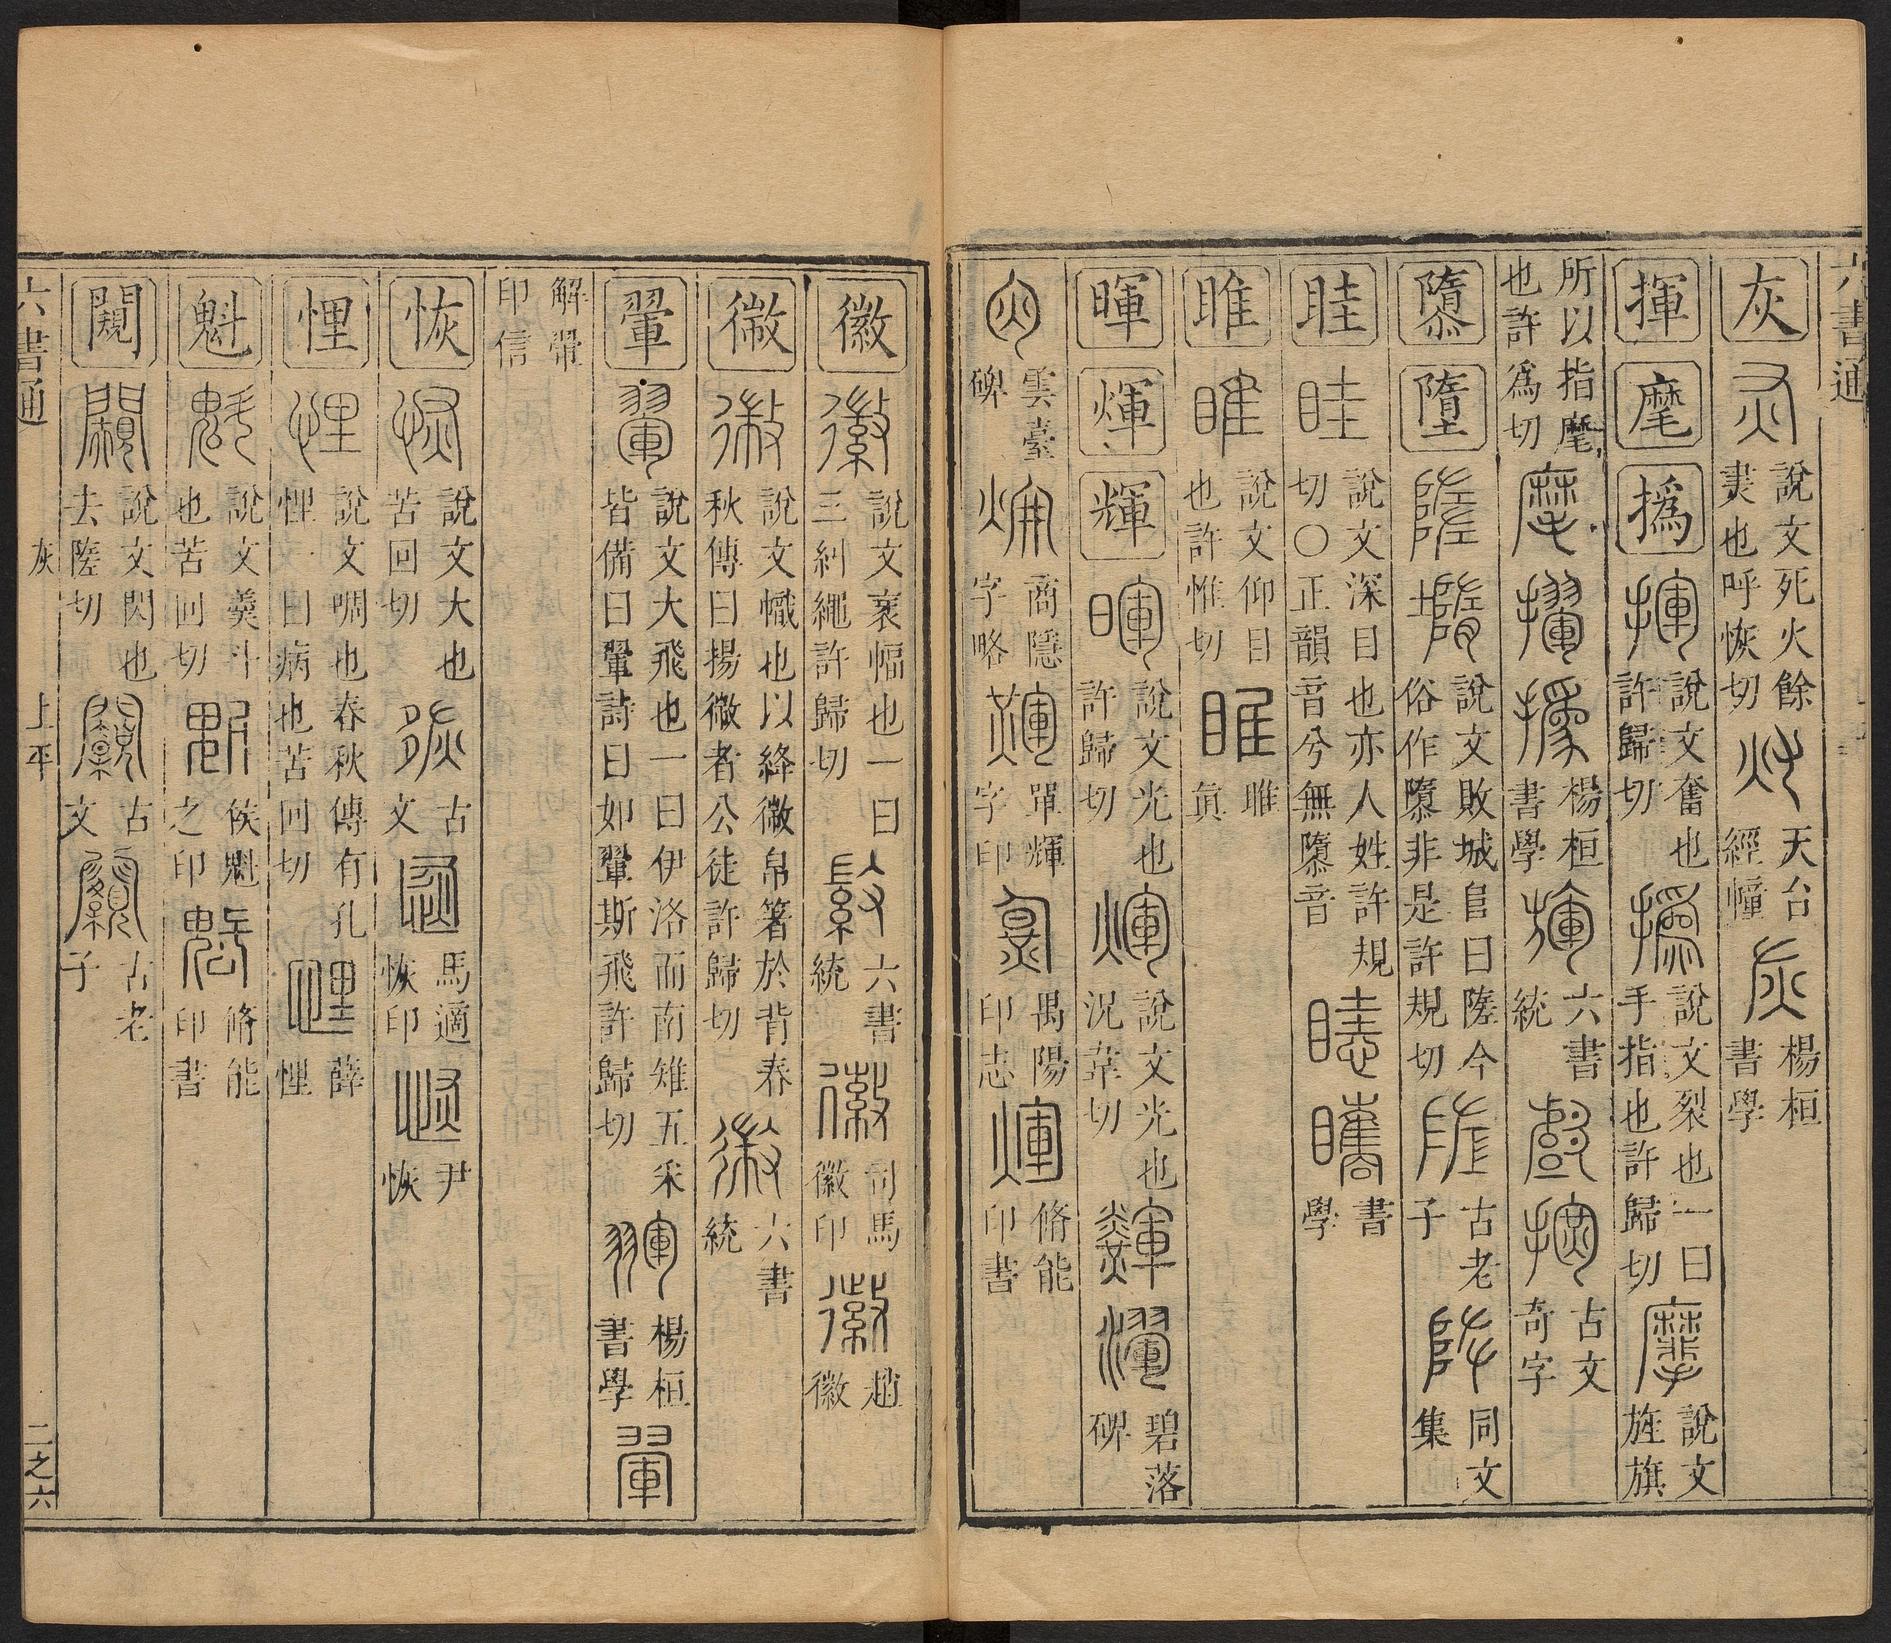 六書通
灰 說文死火餘㶳也呼恢切 天台經幢 楊桓書學
揮 麾 撝 說文奮也許歸切 說文裂也一曰手指也許歸切 說文旌旗
所以指麾也許為切 楊桓書學 六書統 古文奇字
隳 墮 說文敗城𨸏曰隓今俗作隳非是許規切 古老子 同文集
眭 說文深目也亦人姓許規切〇正韻音兮無隳音 書學
睢 說文仰目也許惟切 睢寘
暉 煇 輝 說文光也許歸切 說文光也況韋切 碧落碑
雲臺碑 商隱字略 單輝字印 禺陽印志 脩能印書
徽 說文衺幅也一曰三糾繩許歸切 六書統 司馬徽印 趙徽
徽 說文幟也以絳徽帛箸於背春秋傳曰揚徽者公徒許歸切 六書統
翬 說文大飛也一曰伊洛而南雉五采皆備曰翬詩曰如翬斯飛許歸切 楊桓書學
解翬印信
恢 說文大也苦回切 古文 馬適恢印 尹恢
悝 說文啁也春秋傳有孔悝一曰病也苦回切 薛悝
魁 說文羹斗也苦回切 侯魁之印 脩能印書
闚 說文閃也去隓切 古文 古老子
六書通 灰 上平 二之六